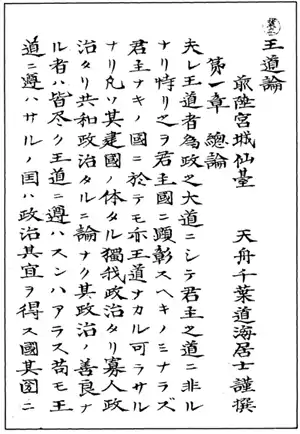 王道論
前陸宮城仙臺　天舟千葉道海居士謹撰
第一章　總論
夫レ王道者為政之大道ニシテ君主之道ニ非ル
ナリ特リ之ヲ君主國ニ顕彰スヘキノミナラズ
君主ナキノ國ニ於テモ亦王道ナカル可ラサル
ナリ凡ソ其建國ノ体タル獨裁政治タリ寡人政
治タリ共和政治タルニ論ナク其政治ノ善良ナ
ル者ハ皆尽ク王道ニ遵ハスンハアラス苟モ王
道ニ遵ハサルノ国ハ政治其宜ヲ得ス國其国ニ